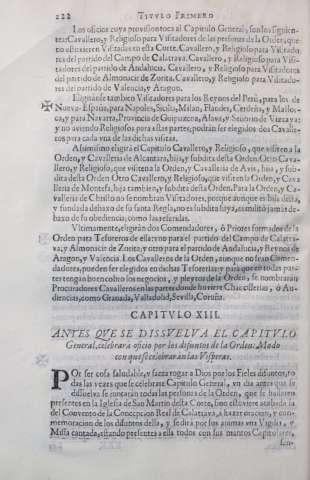 222 TITVLO PRIMERO
Los oficios cuya provision toca al Capitulo General, son los siguien-
tes: Cavallero, y Religioso para Visitadores de las personas de la Orden, que
no estuvieren Visitadas en esta Corte. Cavallero, y Religioso para Visitado-
res del partido del Campo de Calatrava. Cavallero, y Religioso para Visi-
tadores del partido de Andalucia. Cavallero, y Religioso para Visitadores
del partido de Almonacir de Zorita. Cavallero, y Religioso para Visitado-
res del partido de Valencia, y Aragon.
Eligense tambien Visitadores para los Reynos del Perù, para los de
Nueva-España, para Napoles, Sicilia, Milan, Flandes, Cerdeña, y Mallor-
ca, y para Navarra, Provincia de Guipuzcoa, Alava, y Señorio de Vizcaya:
y no aviendo Religiosos para estas partes, podràn ser elegidos dos Cavalle-
ros para cada vna de las dichas visitas.
Assimismo eligirà el Capitulo Cavallero, y Religioso, que visiten a la
Orden, y Cavalleria de Alcantara, hija, y subdita desta Orden. Otro Cava-
llero, y Religioso, que visiten la Orden, y Cavalleria de Avis, hija, y sub-
dita desta Orden. Otro Cavallero, y Religioso, que visiten la Orden, y Cava
lleria de Montesa, hija tambien, y subdita desta Orden. Para la Orden, y Ca-
valleria de Christo no se nombran Visitadores, porque aunque es hija desta,
y fundada debaxo de su santa Regla, no es subdita suya, ni militò jamàs de-
baxo de su obediencia, como las referidas.
Vltimamente, elegiràn dos Comendadores, ò Priores formados de la
Orden para Tesoreros de ella: vno para el partido del Campo de Calatra-
va, y Almonacir de Zorita, y otro para el partido de Andalucia, y Reynos de
Aragon, y Valencia. Los Cavalleros de la Orden, aunque no sean Comen-
dadores, pueden ser elegidos en dichas Tesorerias: y para que en todas par-
tes tengan buen cobro los negocios, y pleytos de la Orden, se nombraràn
Procuradores Cavalleros en las partes donde huviere Chancillerias, ò Au-
diencias, como Granada, Valladolid, Sevilla, Coruña.
CAPITVLO XIII.
ANTES QVE SE DISSVELVA EL CAPITVLO
General, celebrarà oficio por los difuntos de la Orden: Modo
con que se celebraràn las Visperas.
POr ser cosa saludable, y santa rogar a Dios por los Fieles difuntos, to
das las vezes que se celebrare Capitulo General, vn dia antes que se
dissuelva se juntaràn todas las personas de la Orden, que se hallaren
presentes en la Iglesia de San Martin desta Corte, sino estuviere acabada la
del Convento de la Concepcion Real de Calatrava, a hazer oracion, y con-
memoracion de los difuntos della, y se dirà por sus animas vna Vigilia, y
Missa cantada, estando presentes a ella todos con sus mantos Capitulares,